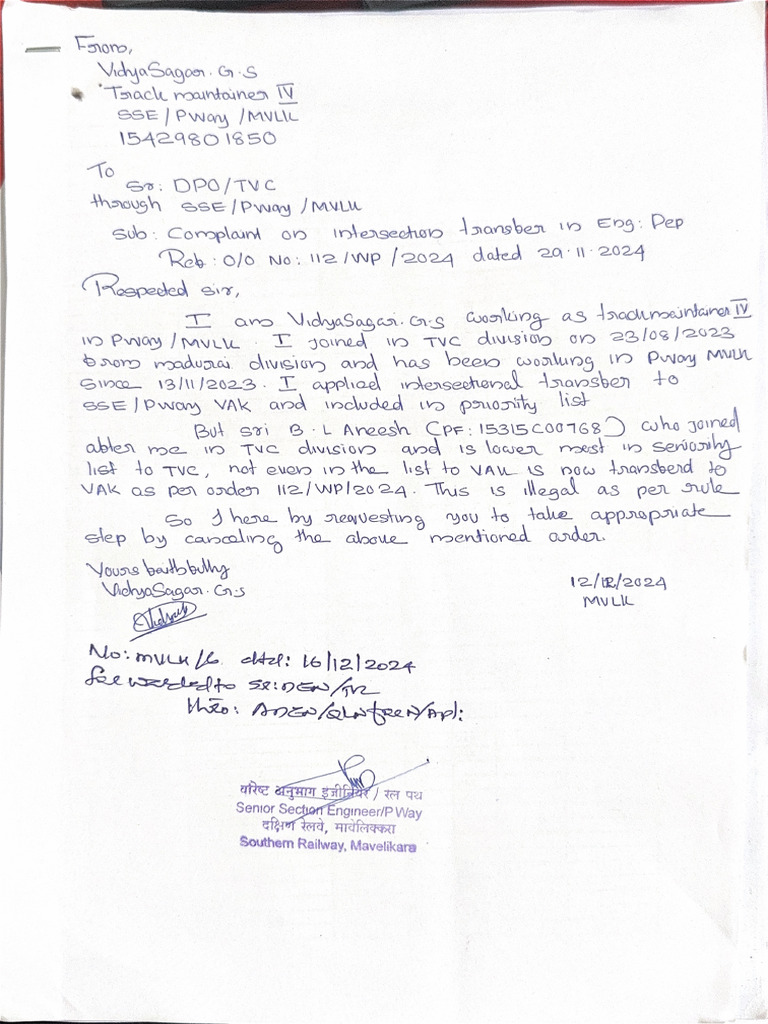 From,
VidyaSagar.G.S
Track maintainer IV
SSE/PWay/MVLK
15429801850
To
Sr: DPO/TVC
through SSE/PWay/MVLK
Sub: Complaint on intersection transber in Eng: Dep
Reb: O/O No: 112/WP/2024 dated 29.11.2024
Respected Sir,
I am VidyaSagar.G.S working as trackmaintainer IV
in PWay/MVLK. I joined in TVC division on 23/08/2023
brom madurai division and has been working in PWay MVLK
since 13/11/2023. I applied intersectional transber to
SSE/PWay VAK and included in priority list
But sri B.L Aneesh (PF: 15315C00768) who joined
abter me in TVC division and is lower most in seniority
list to TVC, not even in the list to VAK is now transberd to
VAK as per order 112/WP/2024. This is illegal as per rule
So I here by requesting you to take appropriate
step by canceling the above mentioned order.
Yours baithbully
VidyaSagar.G.S
12/12/2024
MVLK
No: MVLK/6 dtd: 16/12/2024
forwarded to Sr: DEN/TVC
thro: ADEN/QLN
वरिष्ट अनुभाग इंजीनियर / रेल पथ
Senior Section Engineer/P Way
दक्षिण रेलवे, मावेलिक्करा
Southern Railway, Mavelikara